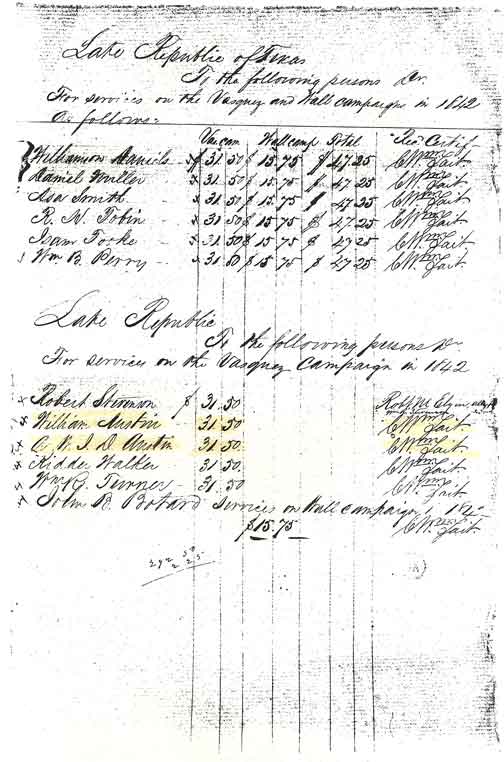 Late Republic of Texas
To the following persons Dr.
For services on the Vasquey and Wall campaigns in 1842
As follows:
Vascam Wall camp Total Rec Certif
Williamson Daniels $ 31.50 $ 15.75 $ 47.25 C Wm Tait
Daniel Miller 31.50 $ 15.75 $ 47.25 C Wm Tait
Asa Smith 31.50 $ 15.75 $ 47.25 C Wm Tait
R. N. Tobin 31.50 $ 15.75 $ 47.25 C Wm Tait
Isam Tooke 31.50 $ 15.75 $ 47.25 C Wm Tait
Wm B. Perry 31.50 $ 15.75 $ 47.25 C Wm Tait
Late Republic
To the following persons Dr
For services on the Vasquey Campaign in 1842
Robert Stevenson $ 31.50 Robt
William Austin 31.50 C Wm Tait
C. N. I. D. Austin 31.50 C Wm Tait
Kidder Walker 31.50 C Wm Tait
Wm G. Turner 31.50 C Wm Tait
John B. Botard Services on Wall campaign, 184
$15.75 C Wm Tait